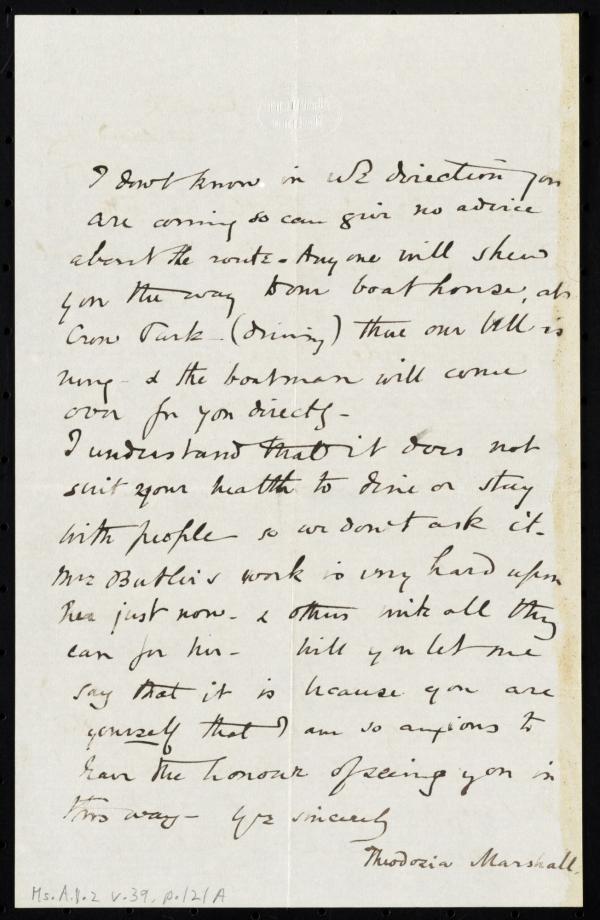 I don't know in wh direction you
are coming so can give no advice
about the route - Any one will shew
you the way to our boat house, at
Crow Park - (driving) then our bell is
rung - & the boatman will come
over for you directly -
I understand that it does not
suit your health to dine or stay
with people so we don't ask it -
Mrs Butler's work is very hard upon
her just now - & others write all they
can for her - Will you let me
say that it is because you are
yourself that I am so anxious to
have the honour of seeing you in
this way - Yrs sincerely
Theodosia Marshall.
Ms. A.1.2 v.39, p.121A